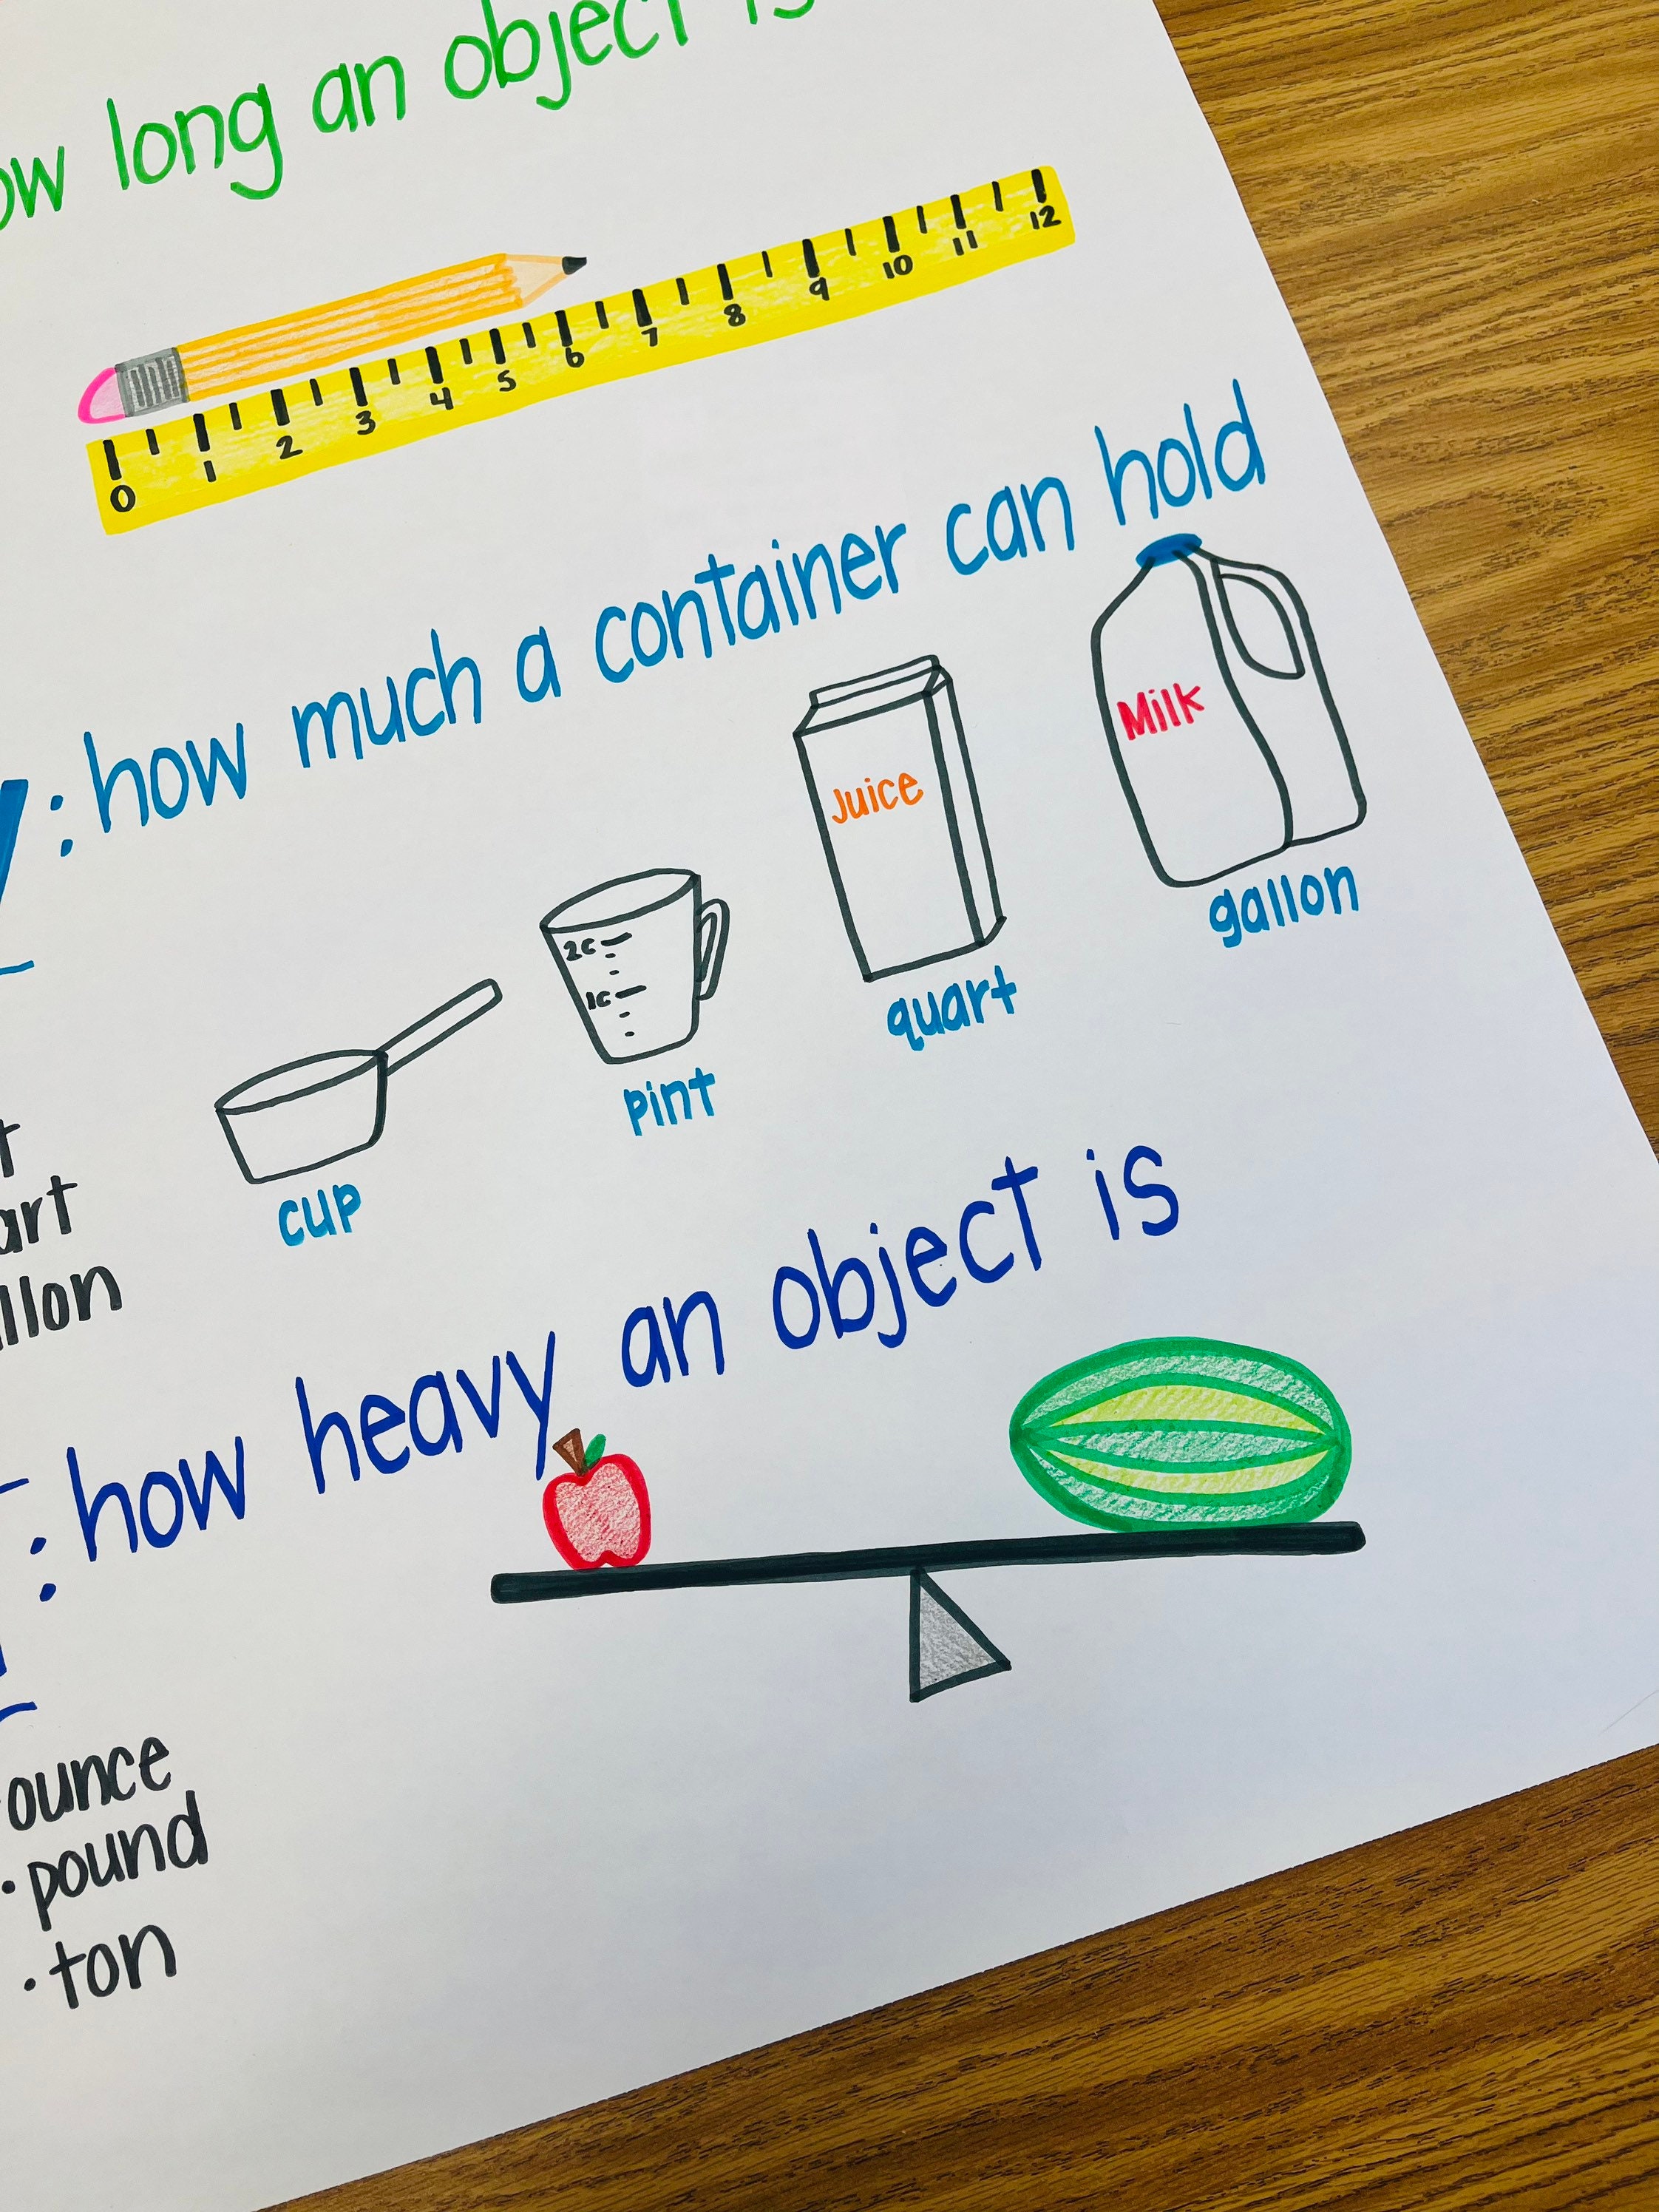 ow long an object is
0 1 2 3 4 5 6 7 8 9 10 11 12
y: how much a container can hold
Milk
Juice
gallon
2c
1c
quart
pint
cup
t
art
llon
: how heavy an object is
ounce
· pound
· ton